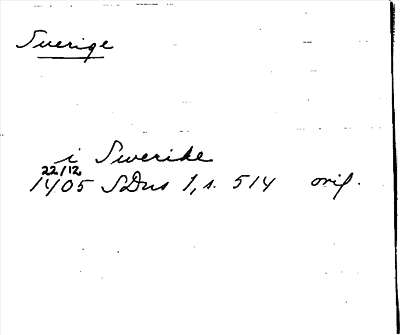 Sverige
i Swerike
22/12
1405 SDns 1, s. 514 orig.